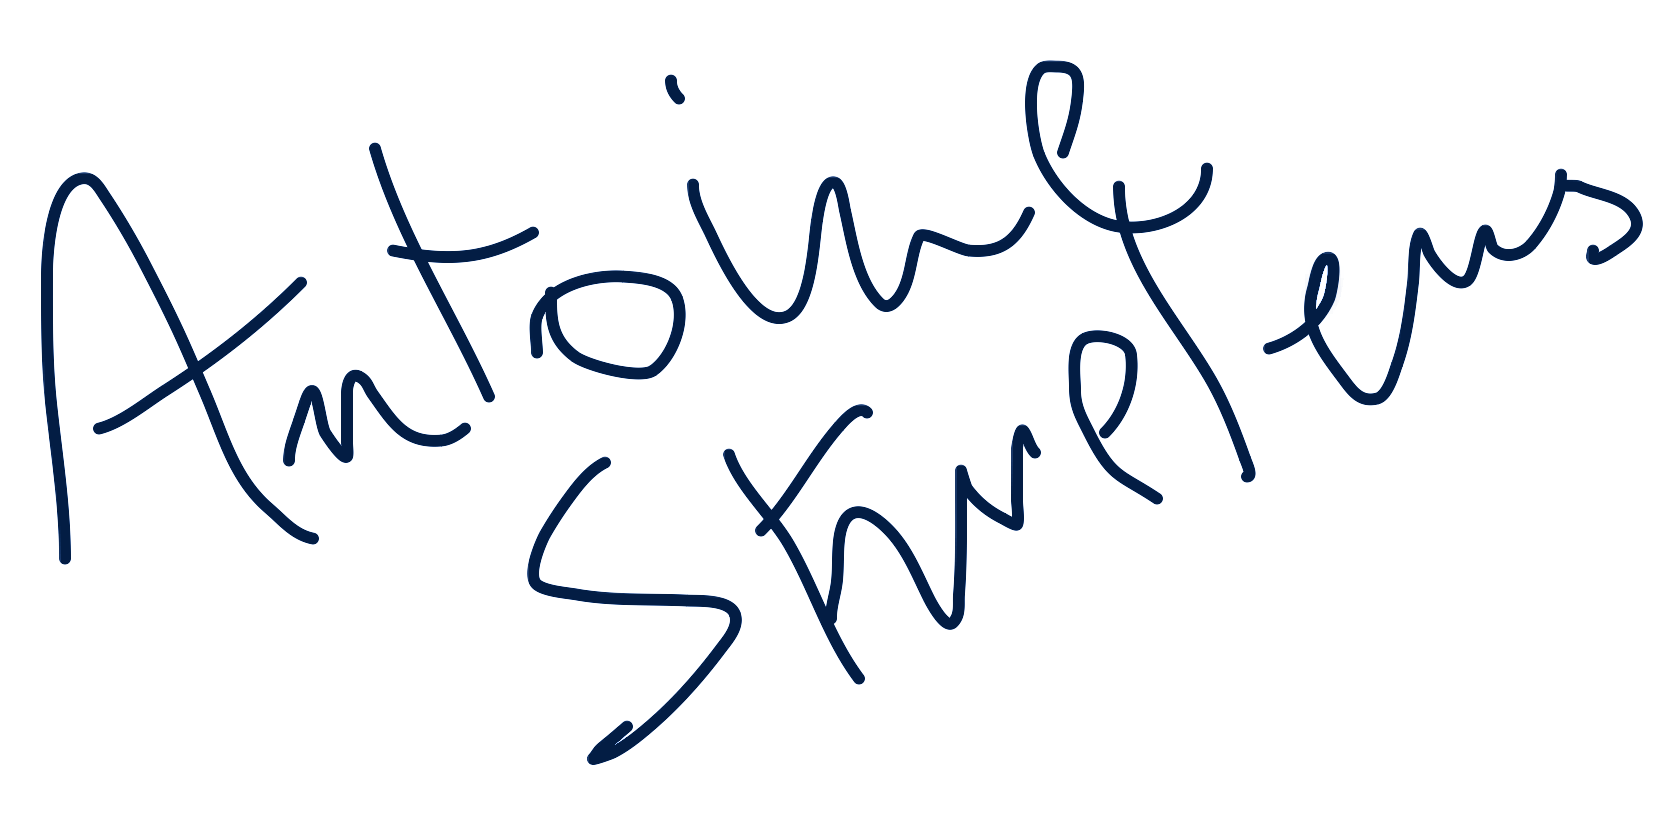 Antoine
Struelens